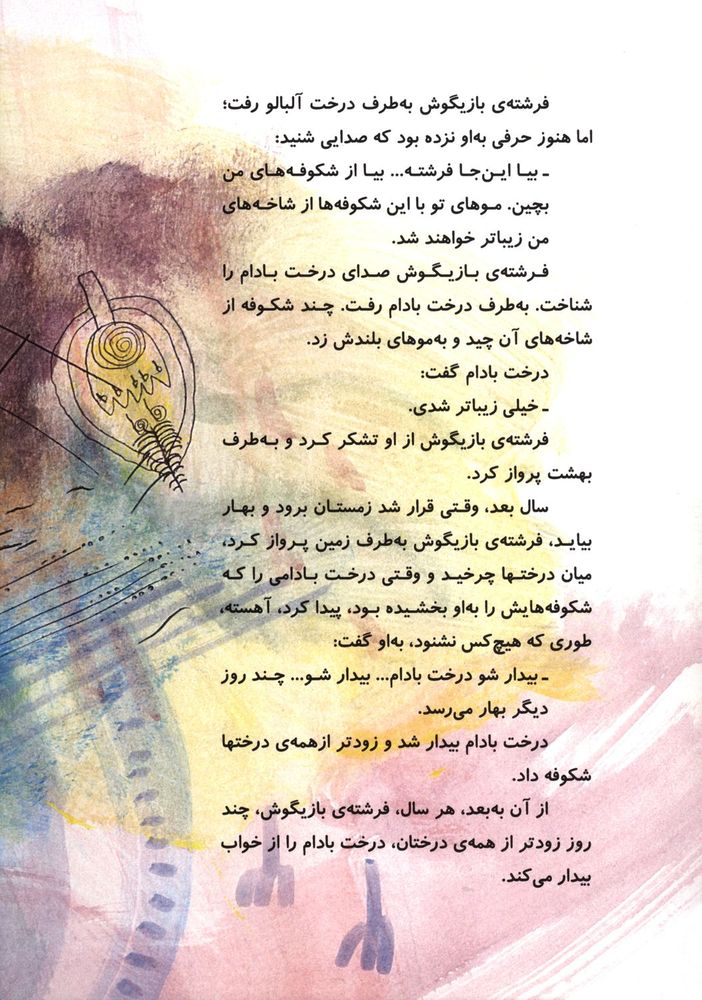 فرشته‌ی بازیگوش به‌طرف درخت آلبالو رفت؛
اما هنوز حرفی به‌او نزده بود که صدایی شنید:
ـ بیا این‌جا فرشته... بیا از شکوفه‌های من
بچین. موهای تو با این شکوفه‌ها از شاخه‌های
من زیباتر خواهند شد.
فرشته‌ی بازیگوش صدای درخت بادام را
شناخت. به‌طرف درخت بادام رفت. چند شکوفه از
شاخه‌های آن چید و به‌موهای بلندش زد.
درخت بادام گفت:
ـ خیلی زیباتر شدی.
فرشته‌ی بازیگوش از او تشکر کرد و به‌طرف
بهشت پرواز کرد.
سال بعد، وقتی قرار شد زمستان برود و بهار
بیاید، فرشته‌ی بازیگوش به‌طرف زمین پرواز کرد،
میان درختها چرخید و وقتی درخت بادامی را که
شکوفه‌هایش را به‌او بخشیده بود، پیدا کرد، آهسته،
طوری که هیچ‌کس نشنود، به‌او گفت:
ـ بیدار شو درخت بادام... بیدار شو... چند روز
دیگر بهار می‌رسد.
درخت بادام بیدار شد و زودتر ازهمه‌ی درختها
شکوفه داد.
از آن به‌بعد، هر سال، فرشته‌ی بازیگوش، چند
روز زودتر از همه‌ی درختان، درخت بادام را از خواب
بیدار می‌کند.